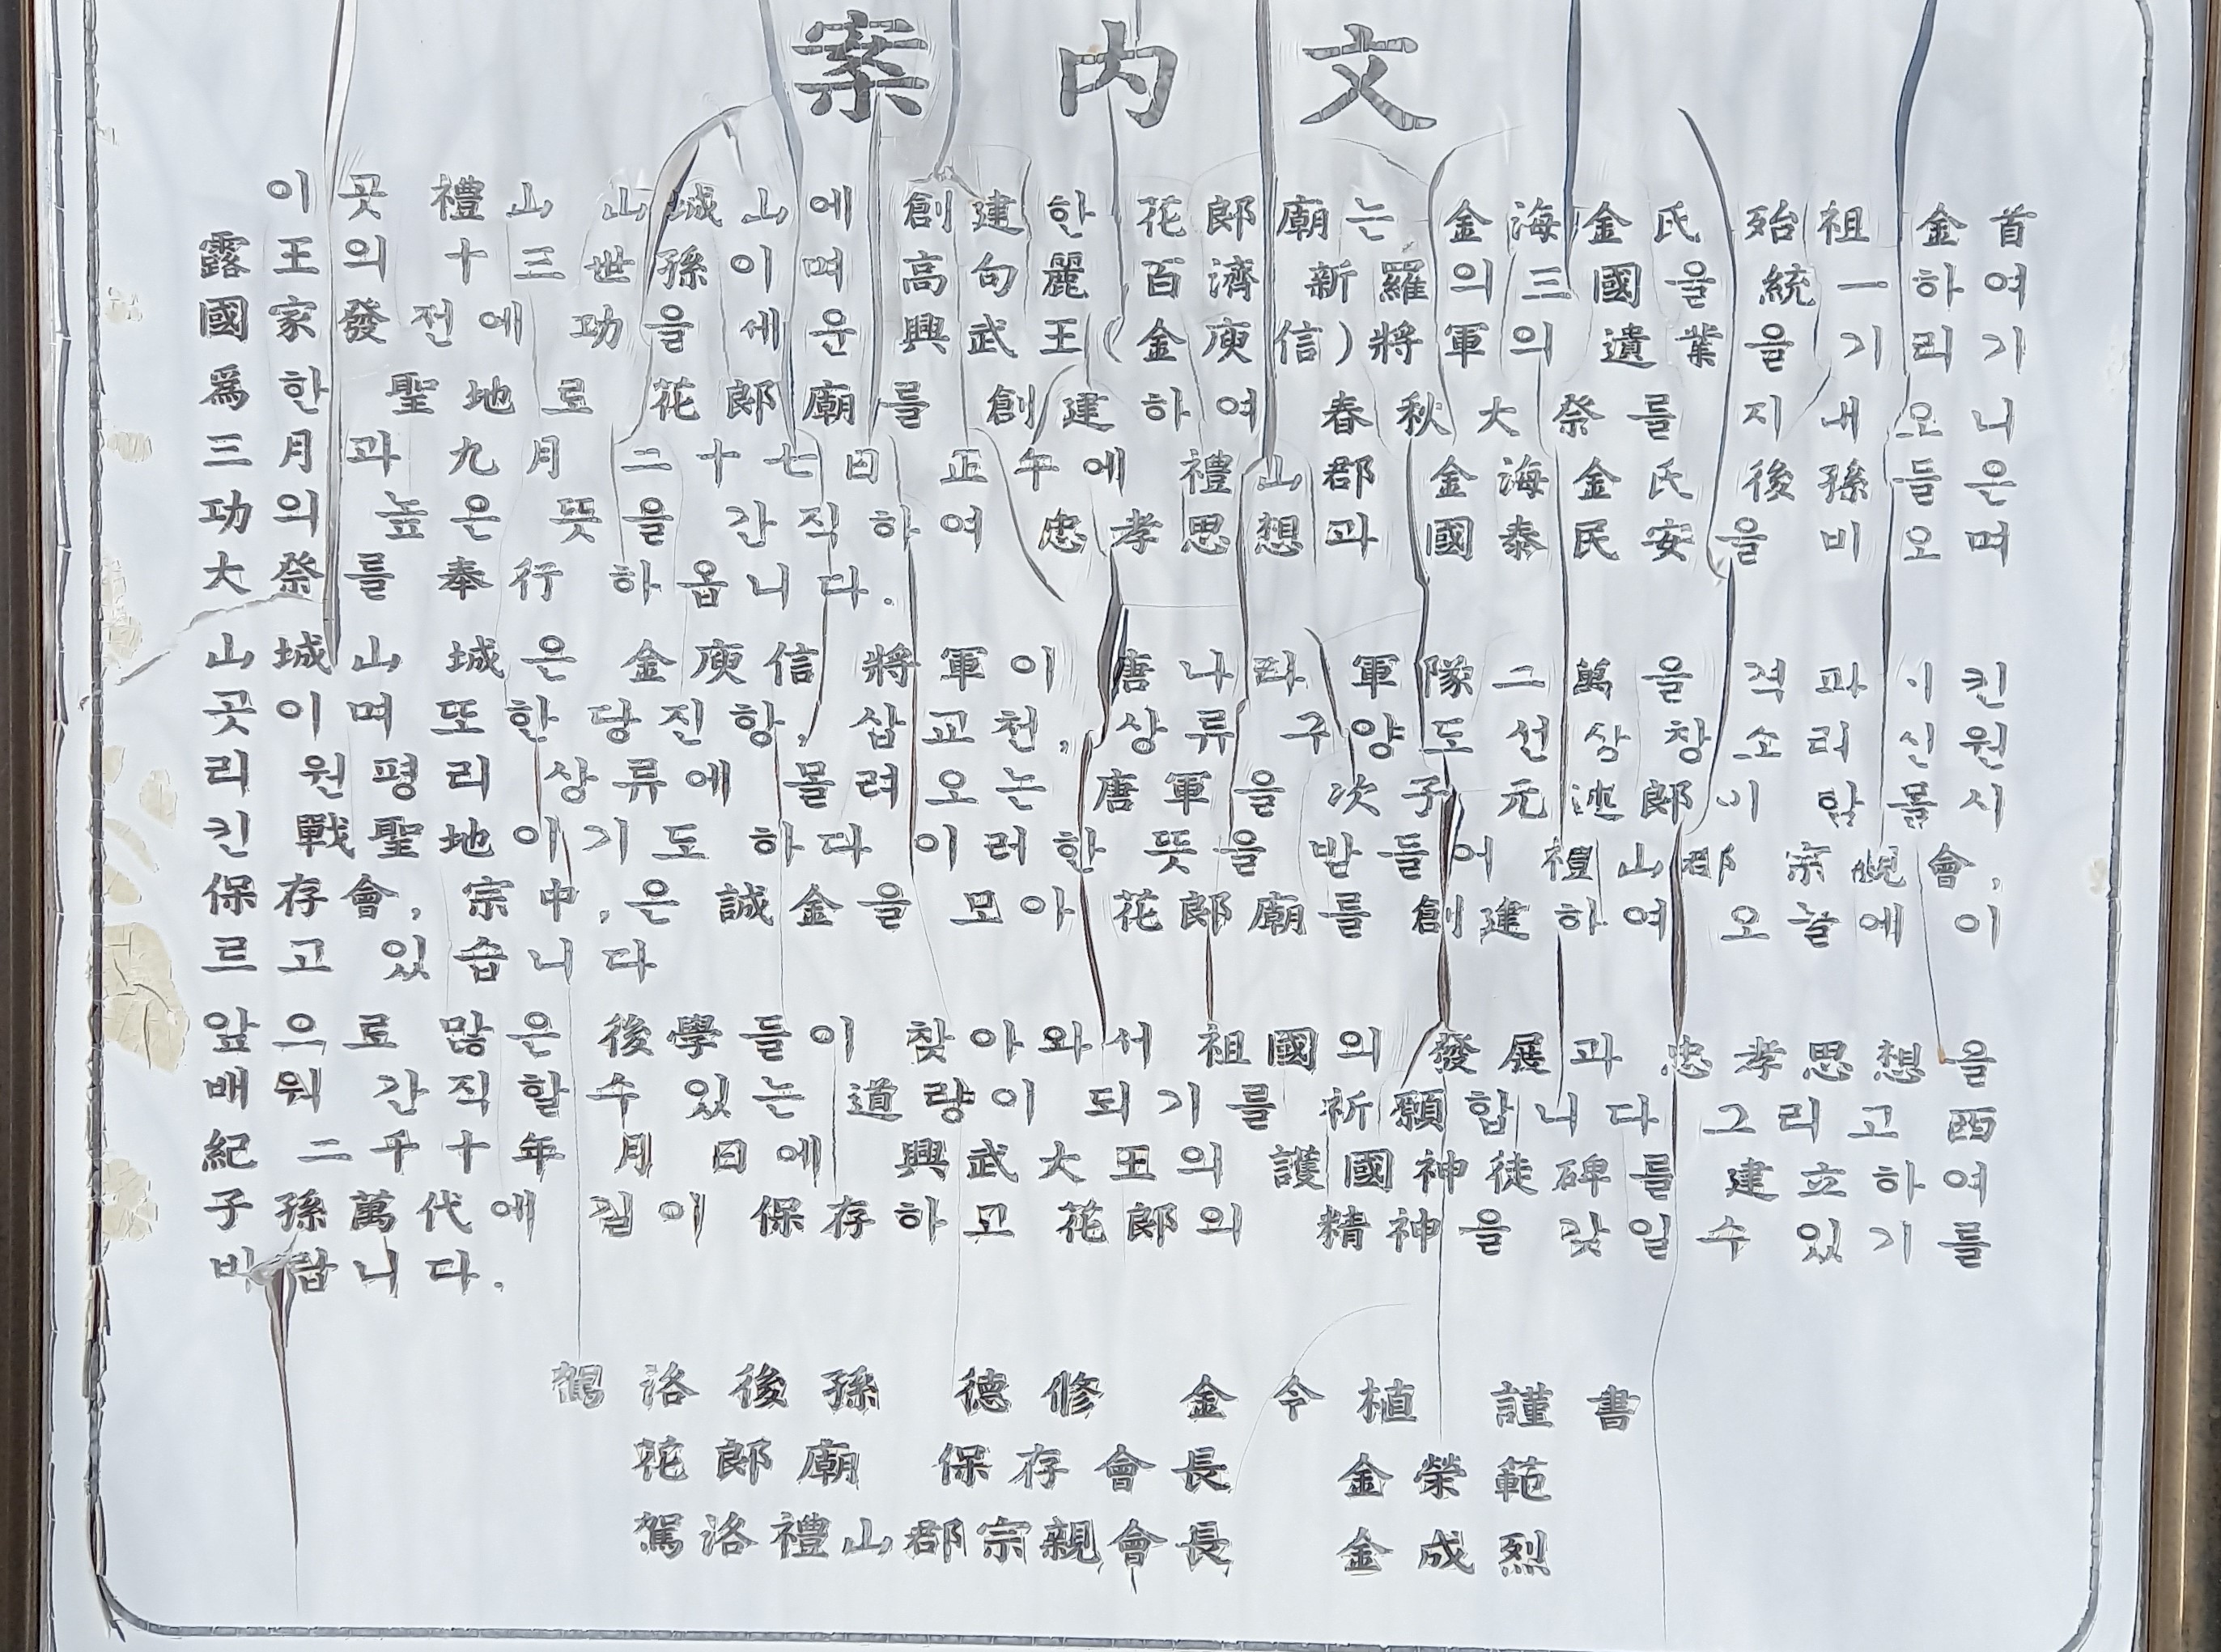 案內文
이곳 禮山 山城山에 創建한 花郞廟는 金海金氏 始祖 金首
露王의 十三世孫이며 高句麗 百濟 新羅의 三國을 統一하여
國家發전에 功을 세운 興武王(金庾信)將軍의 遺業을 기리기
爲한 聖地로 花郞廟를 創建하여 春秋大祭를 지내오니
三月과 九月 二十七日 正午에 禮山郡 金海金氏 後孫들은
功의 높은 뜻을 간직하여 忠孝思想과 國泰民安을 비오며
大祭를 奉行하옵니다.
山城山 城은 金庾信 將軍이 唐나라 軍隊 二萬을 격파시킨
곳이며 또한 당진항, 삽교천, 상류 구양도 선상창소리 신원
리 원평리 상류에 몰려오는 唐軍을 次子 元述郞이 함몰시
킨 戰聖地이기도 하다 이러한 뜻을 받들어 禮山郡 宗親會,
保存會, 宗中,은 誠金을 모아 花郞廟를 創建하여 오늘에 이
르고 있습니다
앞으로 많은 後學들이 찾아와서 祖國의 發展과 忠孝思想을
배워 간직할수 있는 道량이 되기를 祈願합니다 그리고 西
紀 二千十年 月 日에 興武大王의 護國神徒碑를 建立하여
子孫萬代에 길이 保存하고 花郞의 精神을 갖일수 있기를
바랍니다.
駕洛後孫 德修 金令植 謹書
花郞廟 保存會長 金榮範
駕洛禮山郡宗親會長 金成烈